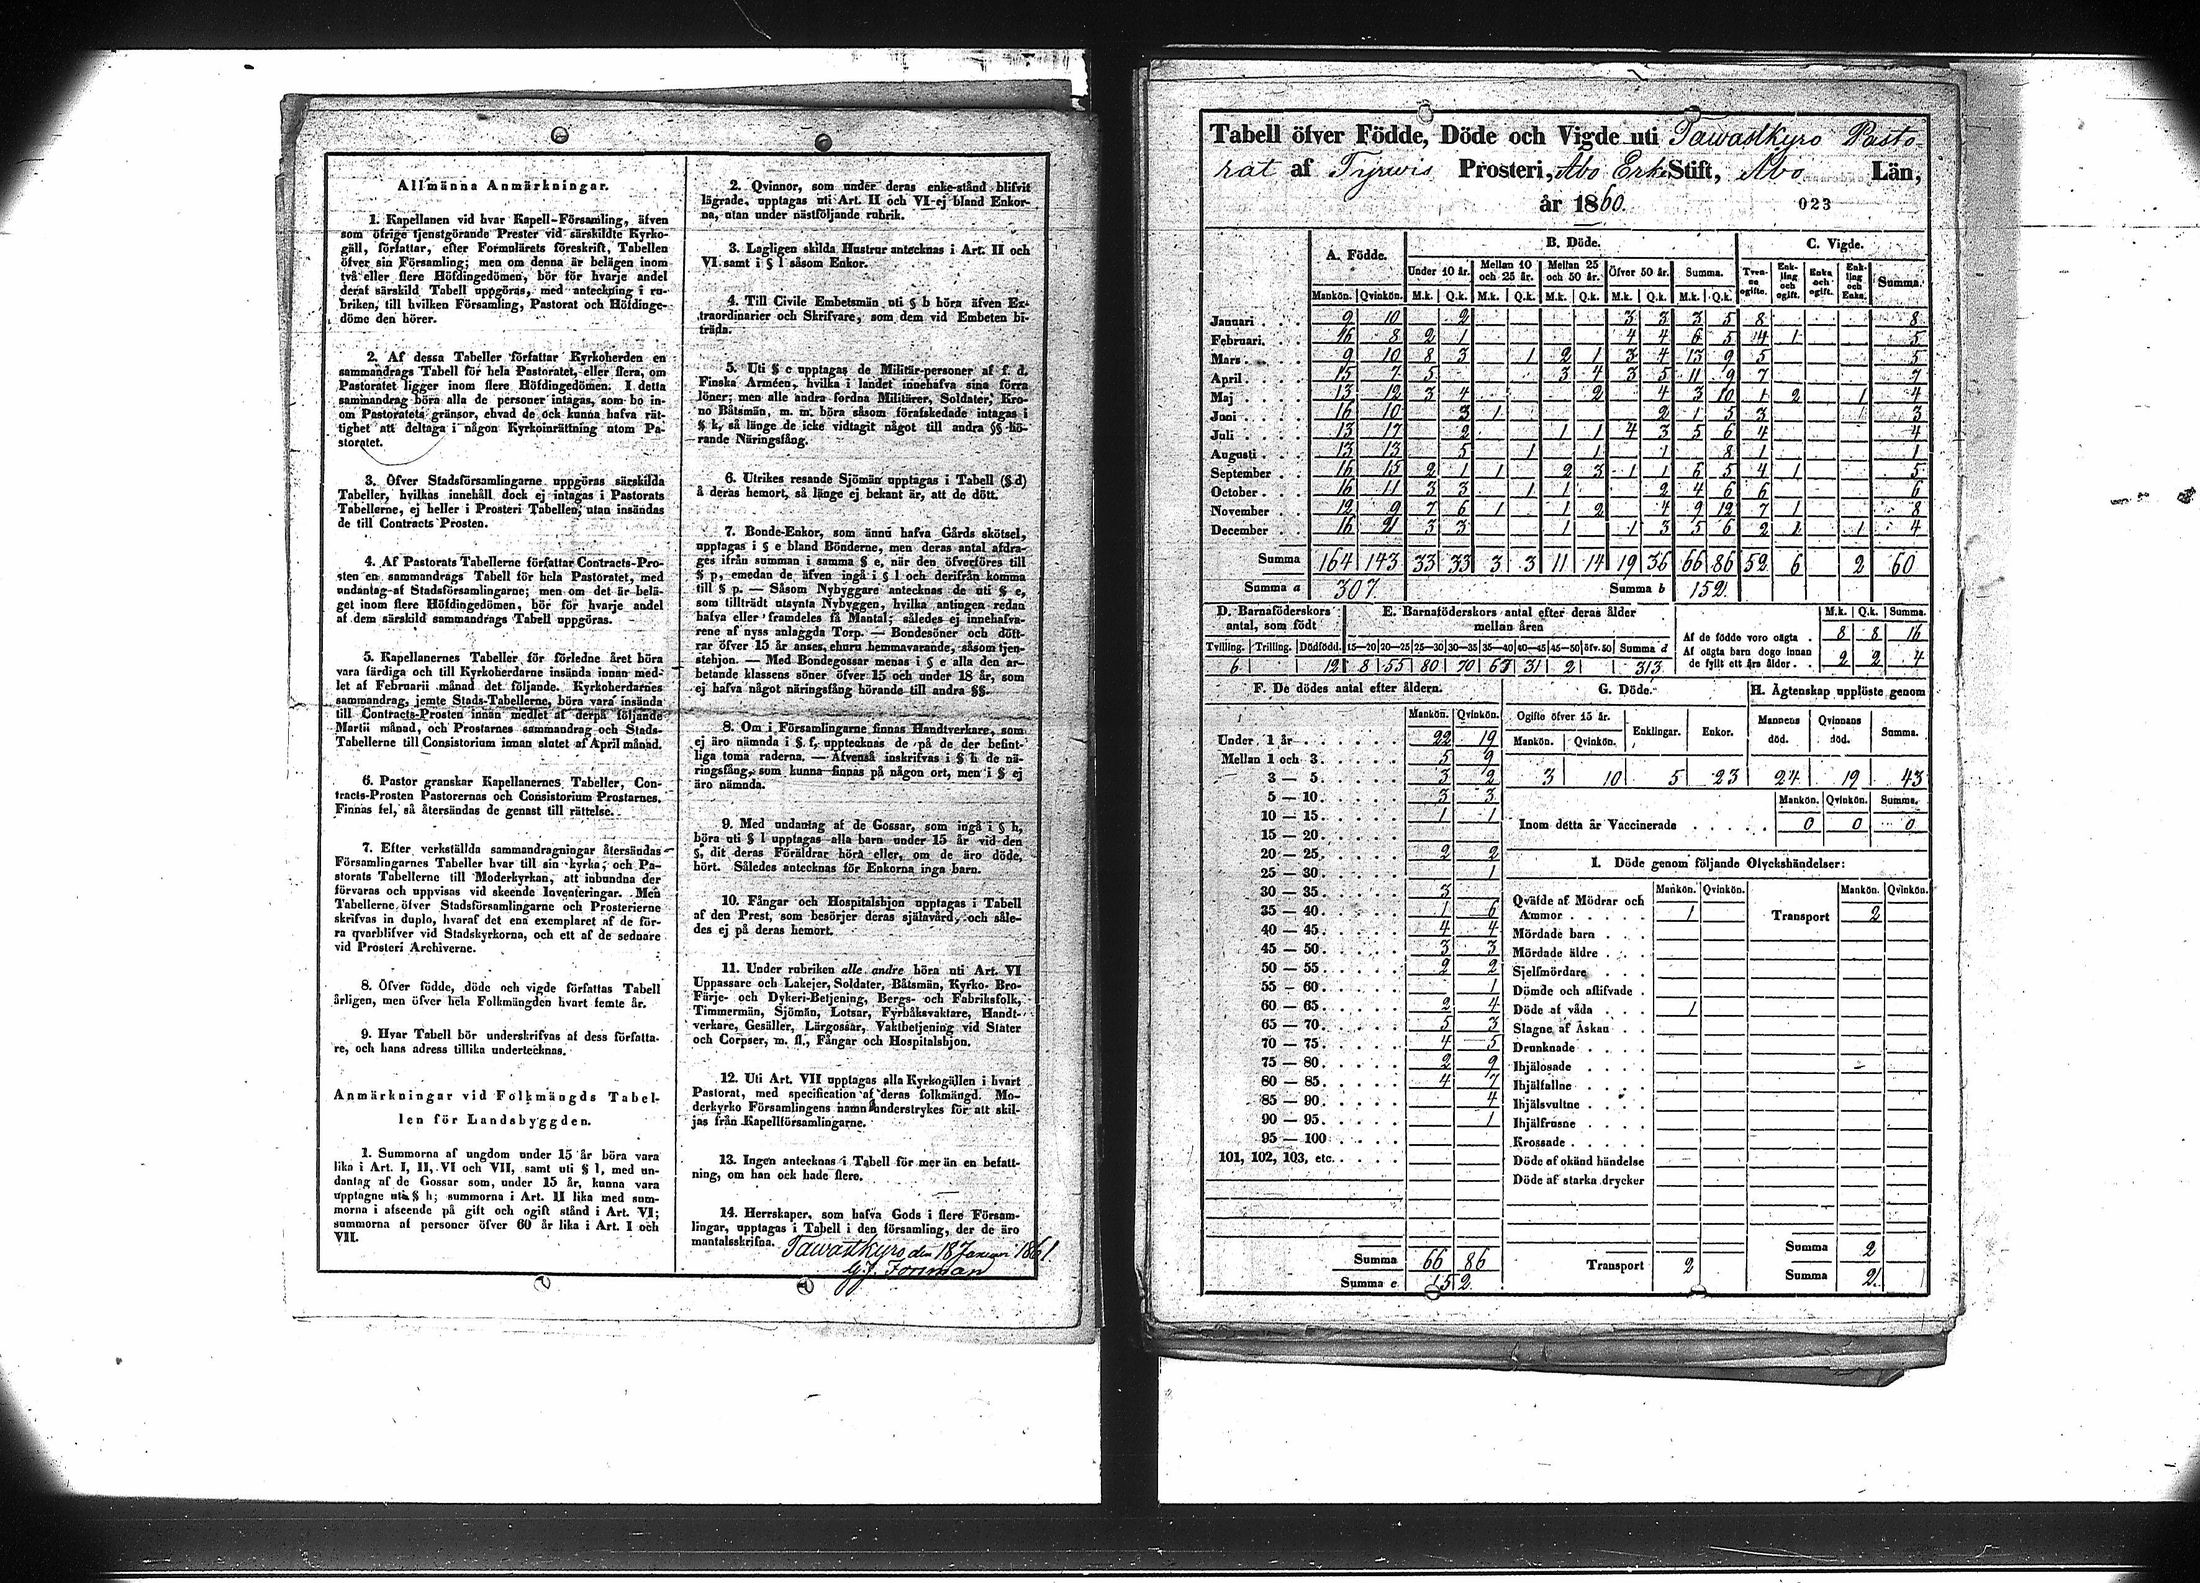 Allmänna Anmärkningar.
1. Kapellanen vid hvar Kapell-Församling, äfven
som öfrige tjenstgörande Prester vid särskildte Kyrko-
gäll, författar, efter Formulärets föreskrift, Tabellen
öfver sin Församling; men om denna är belägen inom
två eller flere Höfdingedömen, bör för hvarje andel
deraf särskild Tabell uppgöras, med anteckning i ru-
briken, till hvilken Församling, Pastorat och Höfdinge-
döme den hörer.
2. Af dessa Tabeller författar Kyrkoherden en
sammandrags Tabell för hela Pastoratet, eller flera, om
Pastoratet ligger inom flere Höfdingedömen. I detta
sammandrag böra alla de personer intagas, som bo in-
om Pastoratets gränsor, ehvad de ock kunna hafva rät-
tighet att deltaga i någon Kyrkoinrättning utom Pa-
storatet.
3. Öfver Stadsförsamlingarne uppgöras särskilda
Tabeller, hvilkas innehåll dock ej intages i Pastorats
Tabellerne, ej heller i Prosteri Tabellen, utan insändas
de till Contracts Prosten.
4. Af Pastorats Tabellerne författar Contracts-Pro-
sten en sammandrags Tabell för hela Pastoratet, med
undantag af Stadsförsamlingarne; men om det är belä-
get inom flere Höfdingedömen, bör för hvarje andel
af dem särskild sammandrags Tabell uppgöras.
5. Kapellanernes Tabeller för förledne året böra
vara färdiga och till Kyrkoherdarne insända innan med-
let af Februarii månad det följande. Kyrkoherdarnes
sammandrag, jemte Stads-Tabellerne, böra vara insända
till Contracts-Prosten innan medlet af derpå följande
Martii månad, och Prostarnes sammandrag och Stads-
Tabellerne till Consistorium innan slutet af April månad.
6. Pastor granskar Kapellanernes Tabeller, Con-
tracts-Prosten Pastorernas och Consistorium Prostarnes.
Finnas fel, så återsändas de genast till rättelse.
7. Efter verkställda sammandragningar återsändas
Församlingarnes Tabeller hvar till sin kyrka, och Pa-
storats Tabellerne till Moderkyrkan, att inbundna der
förvaras och uppvisas vid skeende Inventeringar. Men
Tabellerne öfver Stadsförsamlingarne och Prosterierne
skrifvas in duplo, hvaraf det ena exemplaret af de för-
ra qvarblifver vid Stadskyrkorna, och ett af de sednare
vid Prosteri Archiverne.
8. Öfver födde, döde och vigde författas Tabell
årligen, men öfver hela Folkmängden hvart femte år.
9. Hvar Tabell bör underskrifvas af dess författa-
re, och hans adress tillika undertecknas.
Anmärkningar vid Folkmängds Tabel-
len för Landsbyggden.
1. Summorna af ungdom under 15 år böra vara
lika i Art. I, II, VI och VII, samt uti § l, med un-
dantag af de Gossar som, under 15 år, kunna vara
upptagne uti § h; summorna i Art. II lika med sum-
morna i afseende på gift och ogift stånd i Art. VI;
summorna af personer öfver 60 år lika i Art. I och
VII.
2. Qvinnor, som under deras enke-stånd blifvit
lägrade, upptagas uti Art. II och VI ej bland Enkor-
na, utan under nästföljande rubrik.
3. Lagligen skilda Hustrur antecknas i Art. II och
VI samt i § l såsom Enkor.
4. Till Civile Embetsmän uti § b höra äfven Ex-
traordinarier och Skrifvare, som dem vid Embeten bi-
träda.
5. Uti § c upptagas de Militär-personer af f. d.
Finska Arméen, hvilka i landet innehafva sina förra
löner; men alle andra fordna Militärer, Soldater, Kro-
no Båtsmän, m. m. böra såsom förafskedade intagas i
§ k, så länge de icke vidtagit något till andra §§ hö-
rande Näringsfång.
6. Utrikes resande Sjömän upptagas i Tabell (§ d)
å deras hemort, så länge ej bekant är, att de dött.
7. Bonde-Enkor, som ännu hafva Gårds skötsel,
upptagas i § e bland Bönderne, men deras antal afdra-
ges ifrån summan i samma § e, när den öfverföres till
§ p, emedan de äfven ingå i § l och derifrån komma
till § p. — Såsom Nybyggare antecknas de uti § e,
som tillträdt utsynta Nybyggen, hvilka antingen redan
hafva eller framdeles få Mantal; således ej innehafva-
rene af nyss anlaggda Torp. — Bondesöner och dött-
rar öfver 15 år anses, ehuru hemmavarande, såsom tjen-
stehjon. — Med Bondegossar menas i § e alla den ar-
betande klassens söner öfver 15 och under 18 år, som
ej hafva något näringsfång hörande till andra §§.
8. Om i Församlingarne finnas Handtverkare, som
ej äro nämnda i § f, upptecknas de på de der befint-
liga toma raderna. — Äfvenså inskrifvas i § h de nä-
ringsfång, som kunna finnas på någon ort, men i § ej
äro nämnda.
9. Med undantag af de Gossar, som ingå i § h,
böra uti § l upptagas alla barn under 15 år vid den
§, dit deras Föräldrar höra eller, om de äro döde,
hört. Således antecknas för Enkorna inga barn.
10. Fångar och Hospitalshjon upptagas i Tabell
af den Prest, som besörjer deras själavård, och såle-
des ej på deras hemort.
11. Under rubriken alle andre höra uti Art. VI
Uppassare och Lakejer, Soldater, Båtsmän, Kyrko- Bro-
Färje- och Dykeri-Betjening, Bergs- och Fabriksfolk,
Timmermän, Sjömän, Lotsar, Fyrbåksvaktare, Handt-
verkare, Gesäller, Lärgossar, Vaktbetjening vid Stater
och Corpser, m. fl., Fångar och Hospitalshjon.
12. Uti Art. VII upptagas alla Kyrkogällen i hvart
Pastorat, med specification af deras folkmängd. Mo-
derkyrko Församlingens namn understrykes för att skil-
jas från Kapellförsamlingarne.
13. Ingen antecknas i Tabell för mer än en befatt-
ning, om han ock hade flere.
14. Herrskaper, som hafva Gods i flere Försam-
lingar, upptagas i Tabell i den församling, der de äro
mantalsskrifna.
Tawastkyro den 18 Januari 1861
G. J. Forsman
Tabell öfver Födde, Döde och Vigde uti Tawastkyro Pasto-
rat af Tyrwis Prosteri, Åbo Erke Stift, Åbo Län,
år 1860.
023
A. Födde. B. Döde. C. Vigde.
Under 10 år. Mellan 10 och 25 år. Mellan 25 och 50 år. Öfver 50 år. Summa. Tven-ne ogifte. Enk-ling och ogift. Enka och ogift. Enk-ling och Enka. Summa.
Mankön. Qvinkön. M.k. Q.k. M.k. Q.k. M.k. Q.k. M.k. Q.k. M.k. Q.k.
Januari 9 10 2 3 3 3 5 8 8
Februari. 16 8 2 1 4 4 6 5 4 1 5
Mars 9 10 8 3 1 2 1 3 4 13 9 5 5
April 15 7 5 3 4 3 5 11 9 7 7
Maj 13 12 3 4 2 4 3 10 1 2 1 4
Juni 16 10 3 1 2 1 5 3 3
Juli 13 17 2 1 1 4 3 5 6 4 4
Augusti 13 13 5 1 1 1 8 1 1
September 16 15 2 1 1 2 3 1 1 6 5 4 1 5
October 16 11 3 3 1 1 2 4 6 6 6
November 12 9 7 6 1 1 2 4 9 12 7 1 8
December 16 21 3 3 1 1 3 5 6 2 1 1 4
Summa 164 143 33 33 3 3 11 14 19 36 66 86 52 6 2 60
Summa a 307. Summa b 152.
D. Barnaföderskors antal, som födt
E. Barnaföderskors antal efter deras ålder mellan åren
Tvilling. Trilling. Dödfödd. 15—20 20—25 25—30 30—35 35—40 40—45 45—50 öfv. 50 Summa d
6 12 8 55 80 70 67 31 2 313
M.k. Q.k. Summa.
Af de födde voro oägta 8 8 16
Af oägta barn dogo innan
de fyllt ett års ålder 2 2 4
F. De dödes antal efter åldern.
Mankön. Qvinkön.
Under 1 år 22 19
Mellan 1 och 3. 5 9
3 — 5. 3 2
5 — 10. 3 3
10 — 15. 1 1
15 — 20.
20 — 25. 2 2
25 — 30. 1
30 — 35. 3
35 — 40. 1 6
40 — 45. 4 4
45 — 50. 3 3
50 — 55. 2 2
55 — 60. 1
60 — 65. 2 4
65 — 70. 5 3
70 — 75. 4 5
75 — 80. 2 9
80 — 85. 4 7
85 — 90. 4
90 — 95. 1
95 — 100
101, 102, 103, etc.
Summa 66 86
Summa e 152.
G. Döde. H. Ägtenskap upplöste genom
Ogifte öfver 15 år. Enklingar. Enkor. Mannens död. Qvinnans död. Summa.
Mankön. Qvinkön.
3 10 5 23 24 19 43
Mankön. Qvinkön. Summa.
Inom detta år Vaccinerade 0 0 0
I. Döde genom följande Olyckshändelser:
Mankön. Qvinkön. Mankön. Qvinkön.
Qväfde af Mödrar och
Ammor 1 Transport 2
Mördade barn
Mördade äldre
Sjelfmördare
Dömde och aflifvade
Döde af våda 1
Slagne af Åskan
Drunknade
Ihjälosade
Ihjälfallne
Ihjälsvultne
Ihjälfrusne
Krossade
Döde af okänd händelse
Döde af starka drycker
Summa 2
Transport 2
Summa 2.